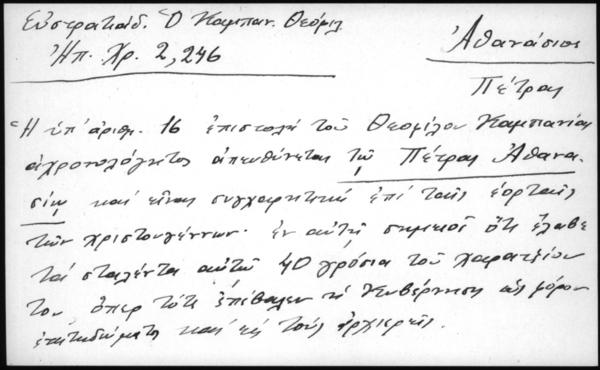 Εὐστρατιάδ. Ὁ Καμπαν. Θεόφιλ
Ἠπ. Χρ. 2, 246
Ἀθανάσιος
Πέτρας
Ἡ ὑπ' ἀριθμ. 16 ἐπιστολὴ τοῦ Θεοφίλου Καμπανίας
ἀχρονολόγητος ἀπευθύνεται τῷ Πέτρας Ἀθανα-
σίῳ καὶ εἶναι συγχαρητικὴ ἐπὶ ταῖς ἑορταῖς
τῶν χριστουγέννων. ἐν αὐτῇ σημειοῖ ὅτι ἔλαβε
τὰ σταλέντα αὐτῷ 40 γρόσια τοῦ χαρατζίου
του ὅπερ τότε ἐπέβαλεν ἡ Κυβέρνησις ὡς φόρον
ἐπιτηδεύματος καὶ εἰς τοὺς ἀρχιερεῖς.